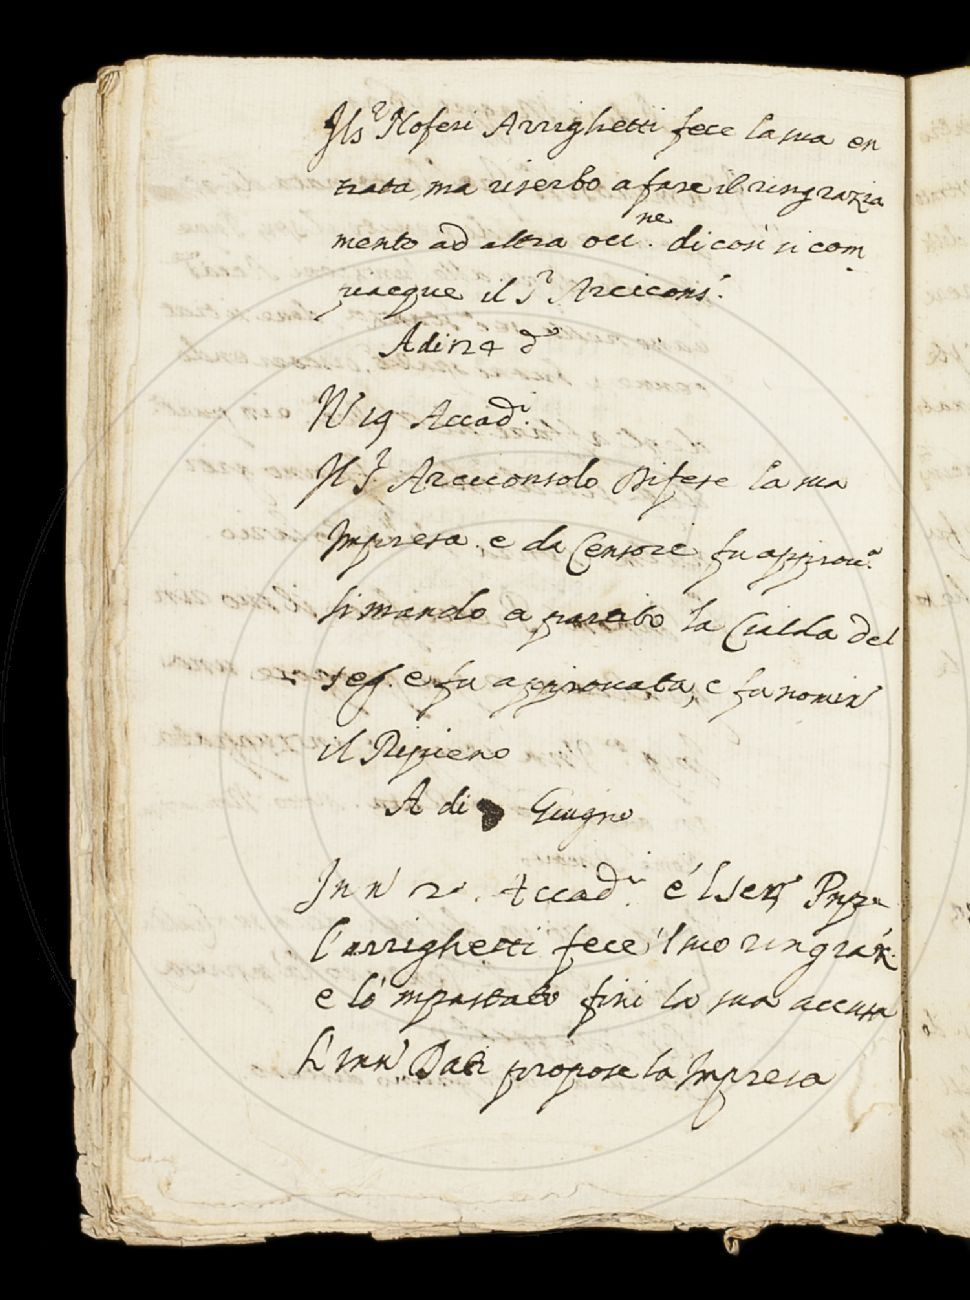 Il S.r Noferi Arrighetti fece la sua en
trata, ma riserbo a fare il ringrazia
mento ad altra occ.ne di così si com
piacque il S.r Arcicons.
A di 24 d.o
N.o 19 Accad.i
Il S.r Arciconsolo Difese la sua
Impresa, e da Censore fu approu.a
si mandò a partito la Cialda del
seg. e fu approuata, e fu nomin.
il Ripieno
A di Giugno
In n.o 20 Accad.i é l Ser.mo Prnpe
l'arrighetti fece 'l suo ringraz.
e lo 'mpastato finì la sua accusa
L'Inn. Dati propose la Impresa